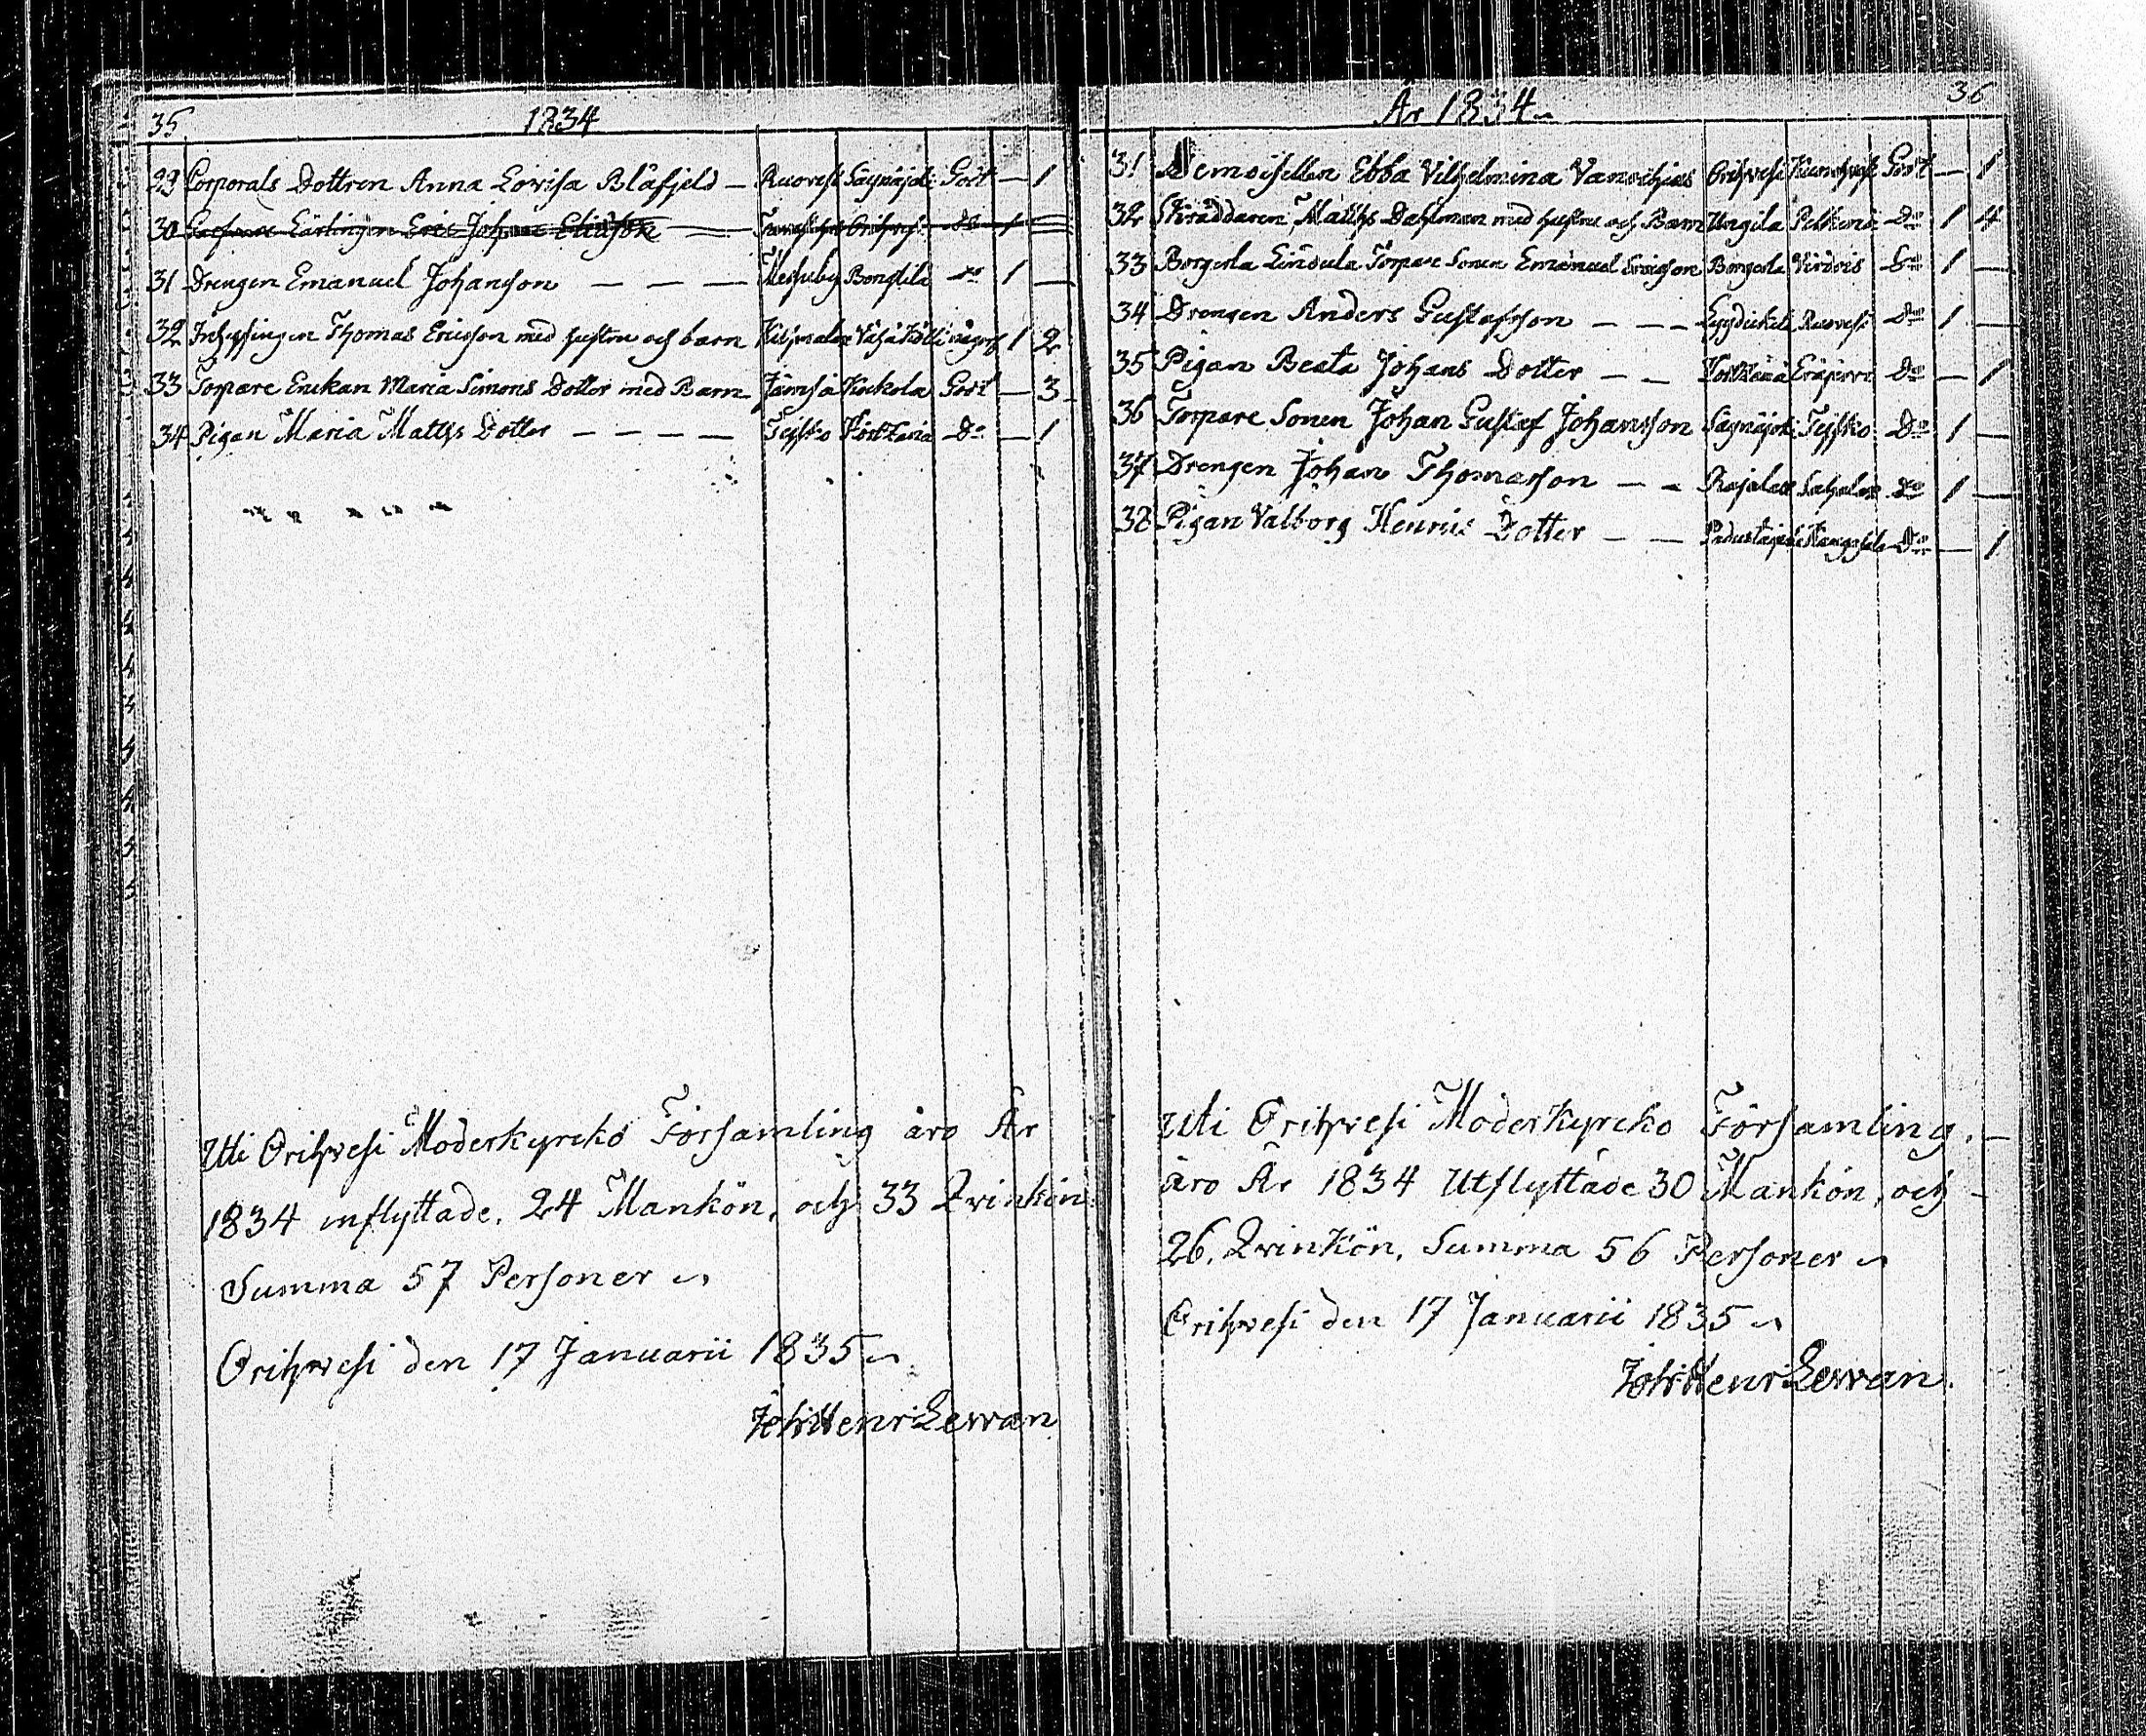 35 1834
29 Corporals Dottren Anna Lovisa Blåfjeld — Ruovesi Säynäjoki Godt — 1
30 Lärlingen Eric Johan Do 1
31 Drengen Emanuel Johanson — — — Messuby Do 1 —
32 Inhysingen Thomas Ericsson med hustru och barn 1 2
33 Torpare Enkan Maria Simons Dotter med Barn Jämsä Godt — 3
34 Pigan Maria Matths Dotter — — — — Teisko Do — 1
Uti Orihvesi Moderkyrcko Församling äro År
1834 inflyttade. 24 Mankön, och 33 Qvinkön
Summa 57 Personer
Orihvesi den 17 Januarii 1835
Joh: Henr: Lewan
År 1834 36
31 Demoisellen Ebba Vilhelmina Orihvesi Godt — 1
32 Skräddaren Matths Dahlman med hustru och Barn Ungila Do 1 4
33 Torpare Sonen Emanuel Virdois Do 1 —
34 Drengen Anders Gustafsson — — — Ruovesi Do 1 —
35 Pigan Beata Johans Dotter — — Do — 1
36 Torpare Sonen Johan Gustaf Johansson Säynäjoki Teisko Do 1 —
37 Drengen Johan Thomasson — — Sahalax Do 1 —
38 Pigan Valborg Henrics Dotter — — Do — 1
Uti Orihvesi Moderkyrcko Församling. —
äro År 1834 Utflyttade 30 Mankön, och —
26. Qvinkön, Summa 56 Personer
Orihvesi den 17 Januarii 1835
Joh: Henr: Lewan.